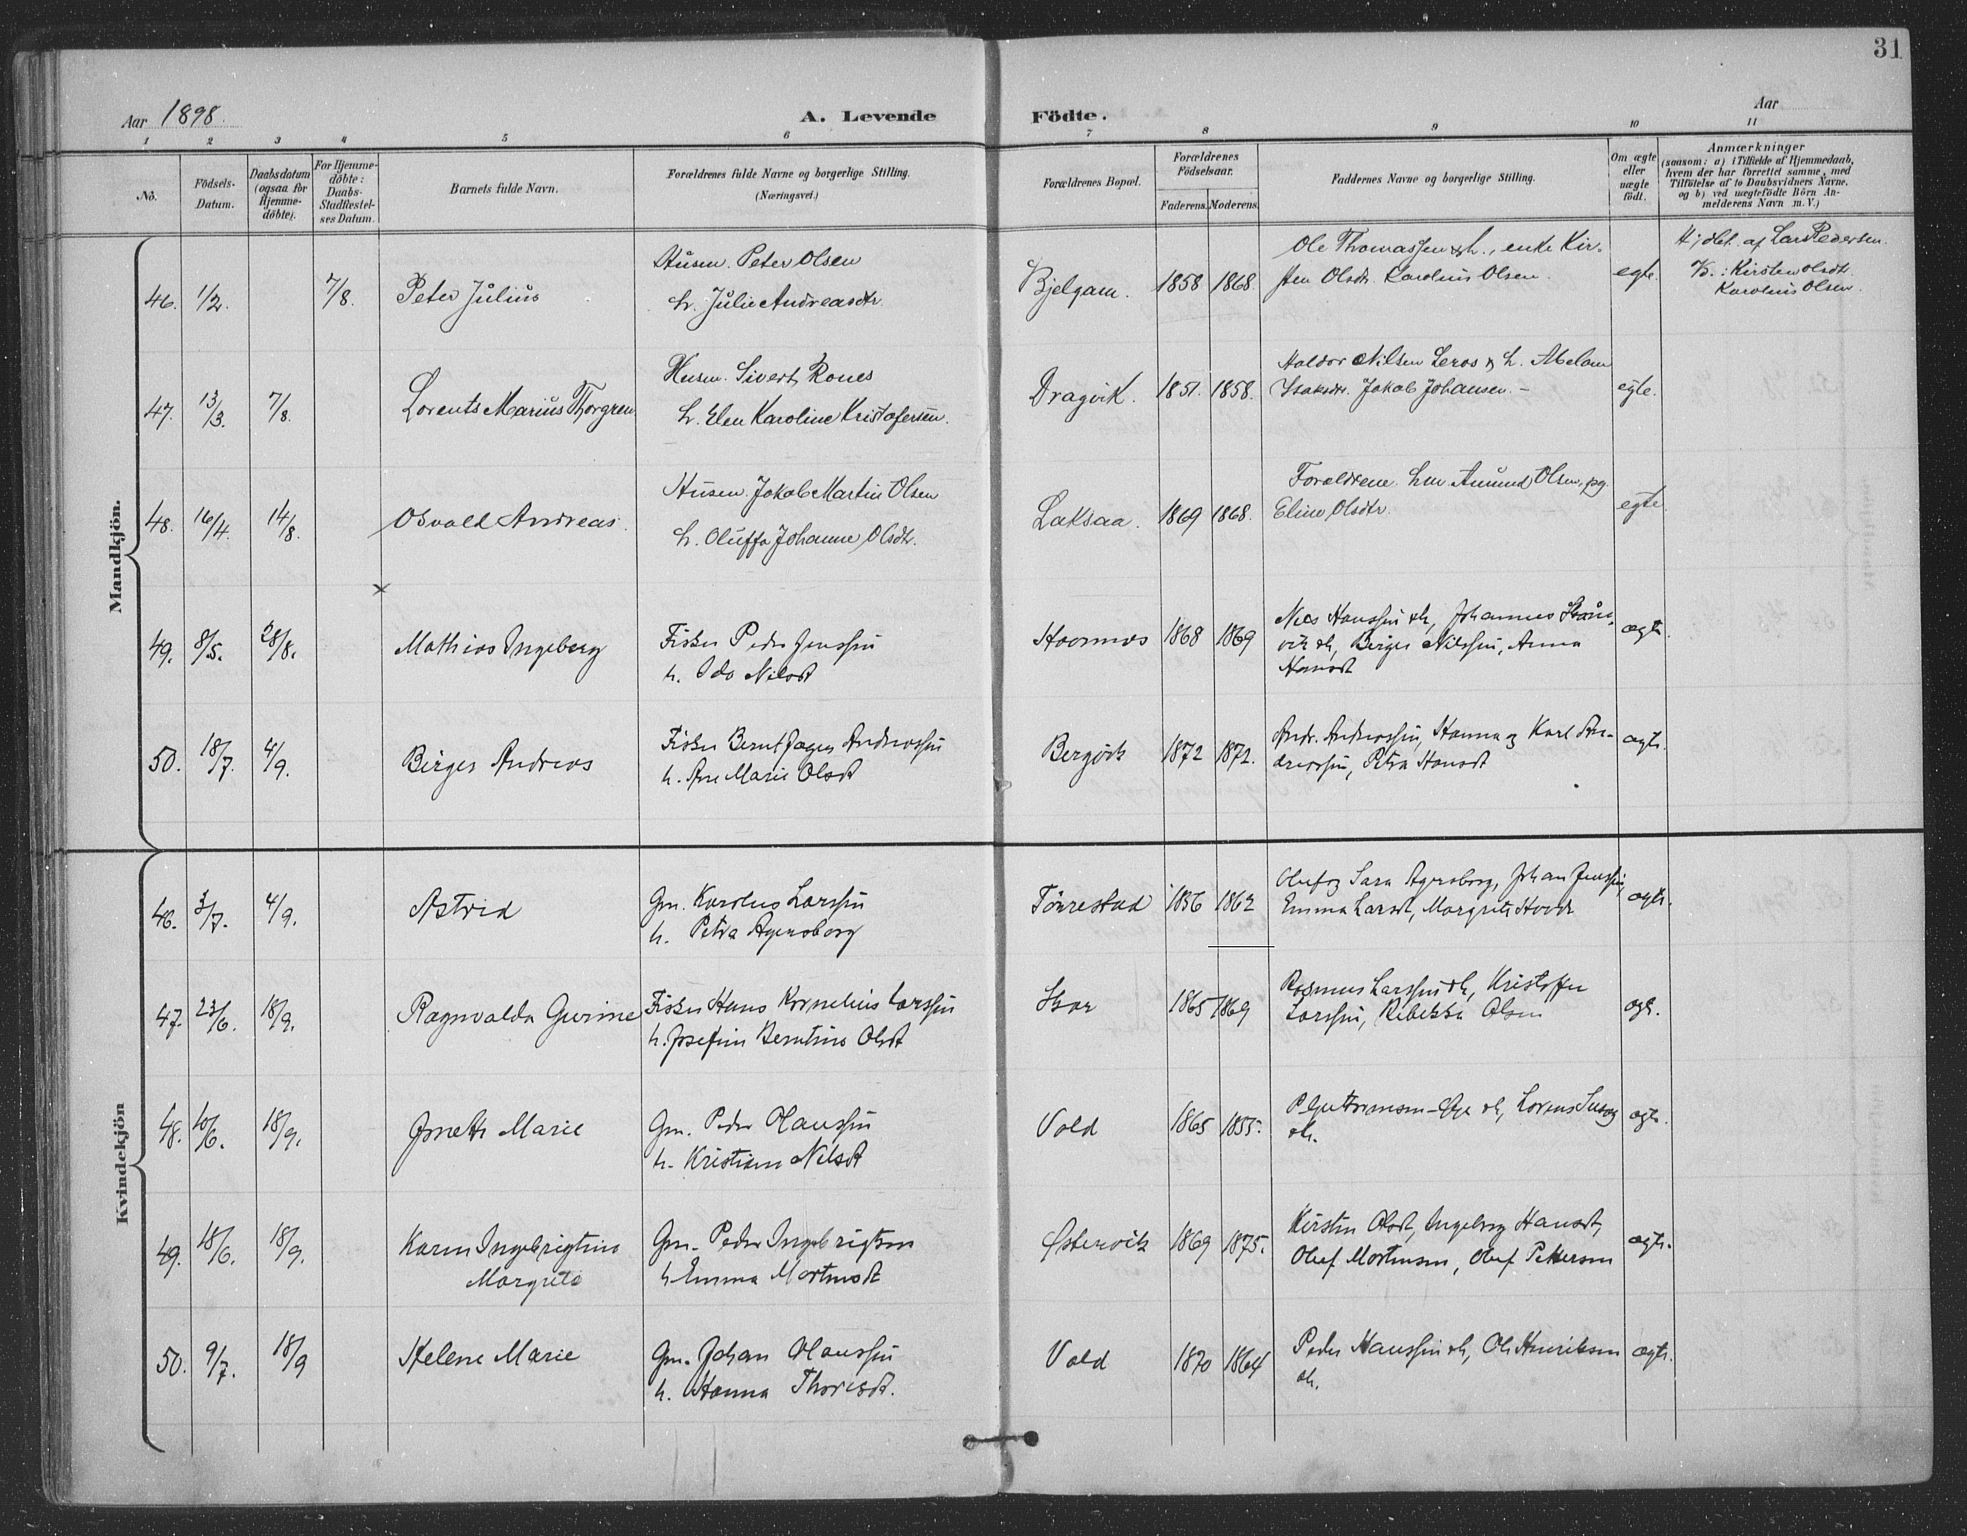 31
Aar 1898.
A. Levende Födte.
Aar
1 2 3 4 5 6 7 8 9 10 11
No.
Födsels-Datum.
Daabsdatum (ogsaa for Hjemmedöbte).
For Hjemmedöbte: Daabs-Stadfæstelses Datum.
Barnets fulde Navn.
Forældrenes fulde Navne og borgerlige Stilling. (Næringsvei.)
Forældrenes Bopæl.
Forældrenes Födselsaar.
Faderens. Moderens.
Faddernes Navne og borgerlige Stilling.
Om ægte eller uægte födt.
Anmærkninger
(saasom: a) i Tilfælde af Hjemmedaab, hvem der har forrettet samme, med Tilföielse af to Daabsvidners Navne, og b) ved uægtefödte Börn Anmelderens Navn m. V.)
Mandkjön.
46. 1/2. 7/8. Peter Julius
Husm. Peter Olsen
h. Julie Andreasdtr
Bjelgam. 1858 1868.
Ole Thomassen & h., enke Kir-
sten Olsdtr. Karolius Olsen.
egte.
Hjdbt. af Lars Pedersen.
V.: Kirsten Olsdtr.
Karolius Olsen.
47. 13/3. 7/8. Lorents Marius Thorgren
Husm. Sivert Rones
h. Elen Karoline Kristofersen.
Dragvik. 1851. 1858.
Haldor Nilsen Leros & h. Abelone
Isaksdtr. Jakob Johansen. –
egte.
48. 16/4. 14/8. Osvald Andreas.
Husm. Jakob Martin Olsen
h. Oluffa Johanne Olsdtr.
Laksaa. 1869 1868.
Forældrene. hm Amund Olsen, pg.
Eline Olsdtr.
egte
×
49. 8/5. 28/8. Mathias Ingeberg
Fisker Peder Jenssen
h. Ida Nilsdt
1868 1869
Nils Hanssen & h, Johannes
vik & h, Birger Nilssen, Anna
Hansdt
ægte
50. 18/7. 4/9. Birger Andreas
Fisker Bernt Andreassen
h. Ane Marie Olsdt
Bergvik 1872 1872.
Andr. Andreassen, Hanna og Karl An-
dreassen, Petra Hansdt
ægte.
Kvindekjön
46. 3/7. 4/9. Astrid
Gm. Karolus Larssen
h. Petra Agersborg
Tørrestad 1856 1862
Oluf og Sara Agersborg, Johan Jenssen,
Emma Larsdt, Margrete
ægte.
47. 23/6. 18/9. Ragnvalda Gurine
Fisker Hans Kornelius Larssen
h. Josefine Berntine Olsdt
Skar 1865 1869
Rasmus Larssen & h, Kristoffer
Larssen, Ribekka Olsen
ægte.
48. 10/6. 18/9. Jonette Marie
Gm. Peder Hanssen
h. Kristiane Nilsdt
Vold 1865 1855.
& h, Lorens
& h.
ægte.
49. 18/6. 18/9. Karen Ingebrigtine
Margrete
Gm. Peder Ingebrigtsen
h. Emma Mortensdt
Østervik 1869 1875.
Kirsten Olsdt, Ingeborg Hansdt,
Oluf Mortensen, Oluf Pettersen
ægte.
50. 9/7. 18/9 Helene Marie
Gm. Johan Hanssen
h. Hanna Thorisdt.
Vold 1870 1864
Peder Hanssen & h, Ole Henriksen
& h.
ægte.